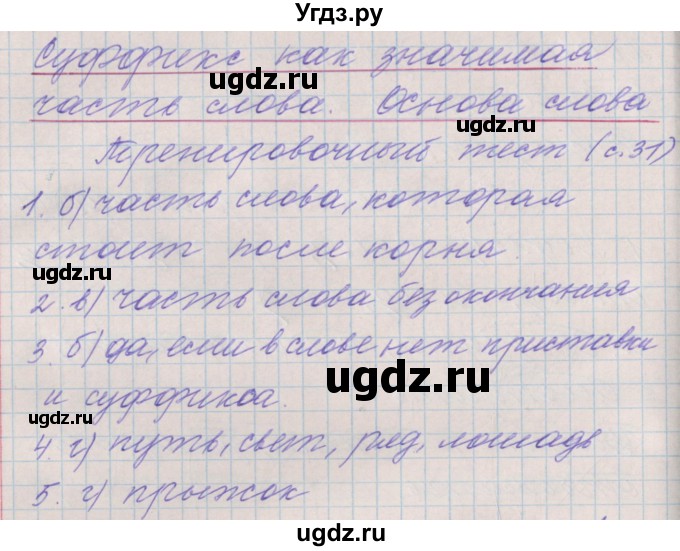 Угдз.ру
Суффикс как значимая
ugdz.ru
часть слова. Основа слова
ugdz.ru
Тренировочный тест (с.31)
1. б) часть слова, которая
ugdz.ru
стоит после корня.
ugdz.ru
2. в) часть слова без окончания
3. б) да, если в слове нет приставки
ugdz.ru
и суффикса.
ugdz.ru
ugdz.ru
4. г) путь, свет, ряд, лошадь
5. г) прыжок
ugdz.ru
Угдз.ру